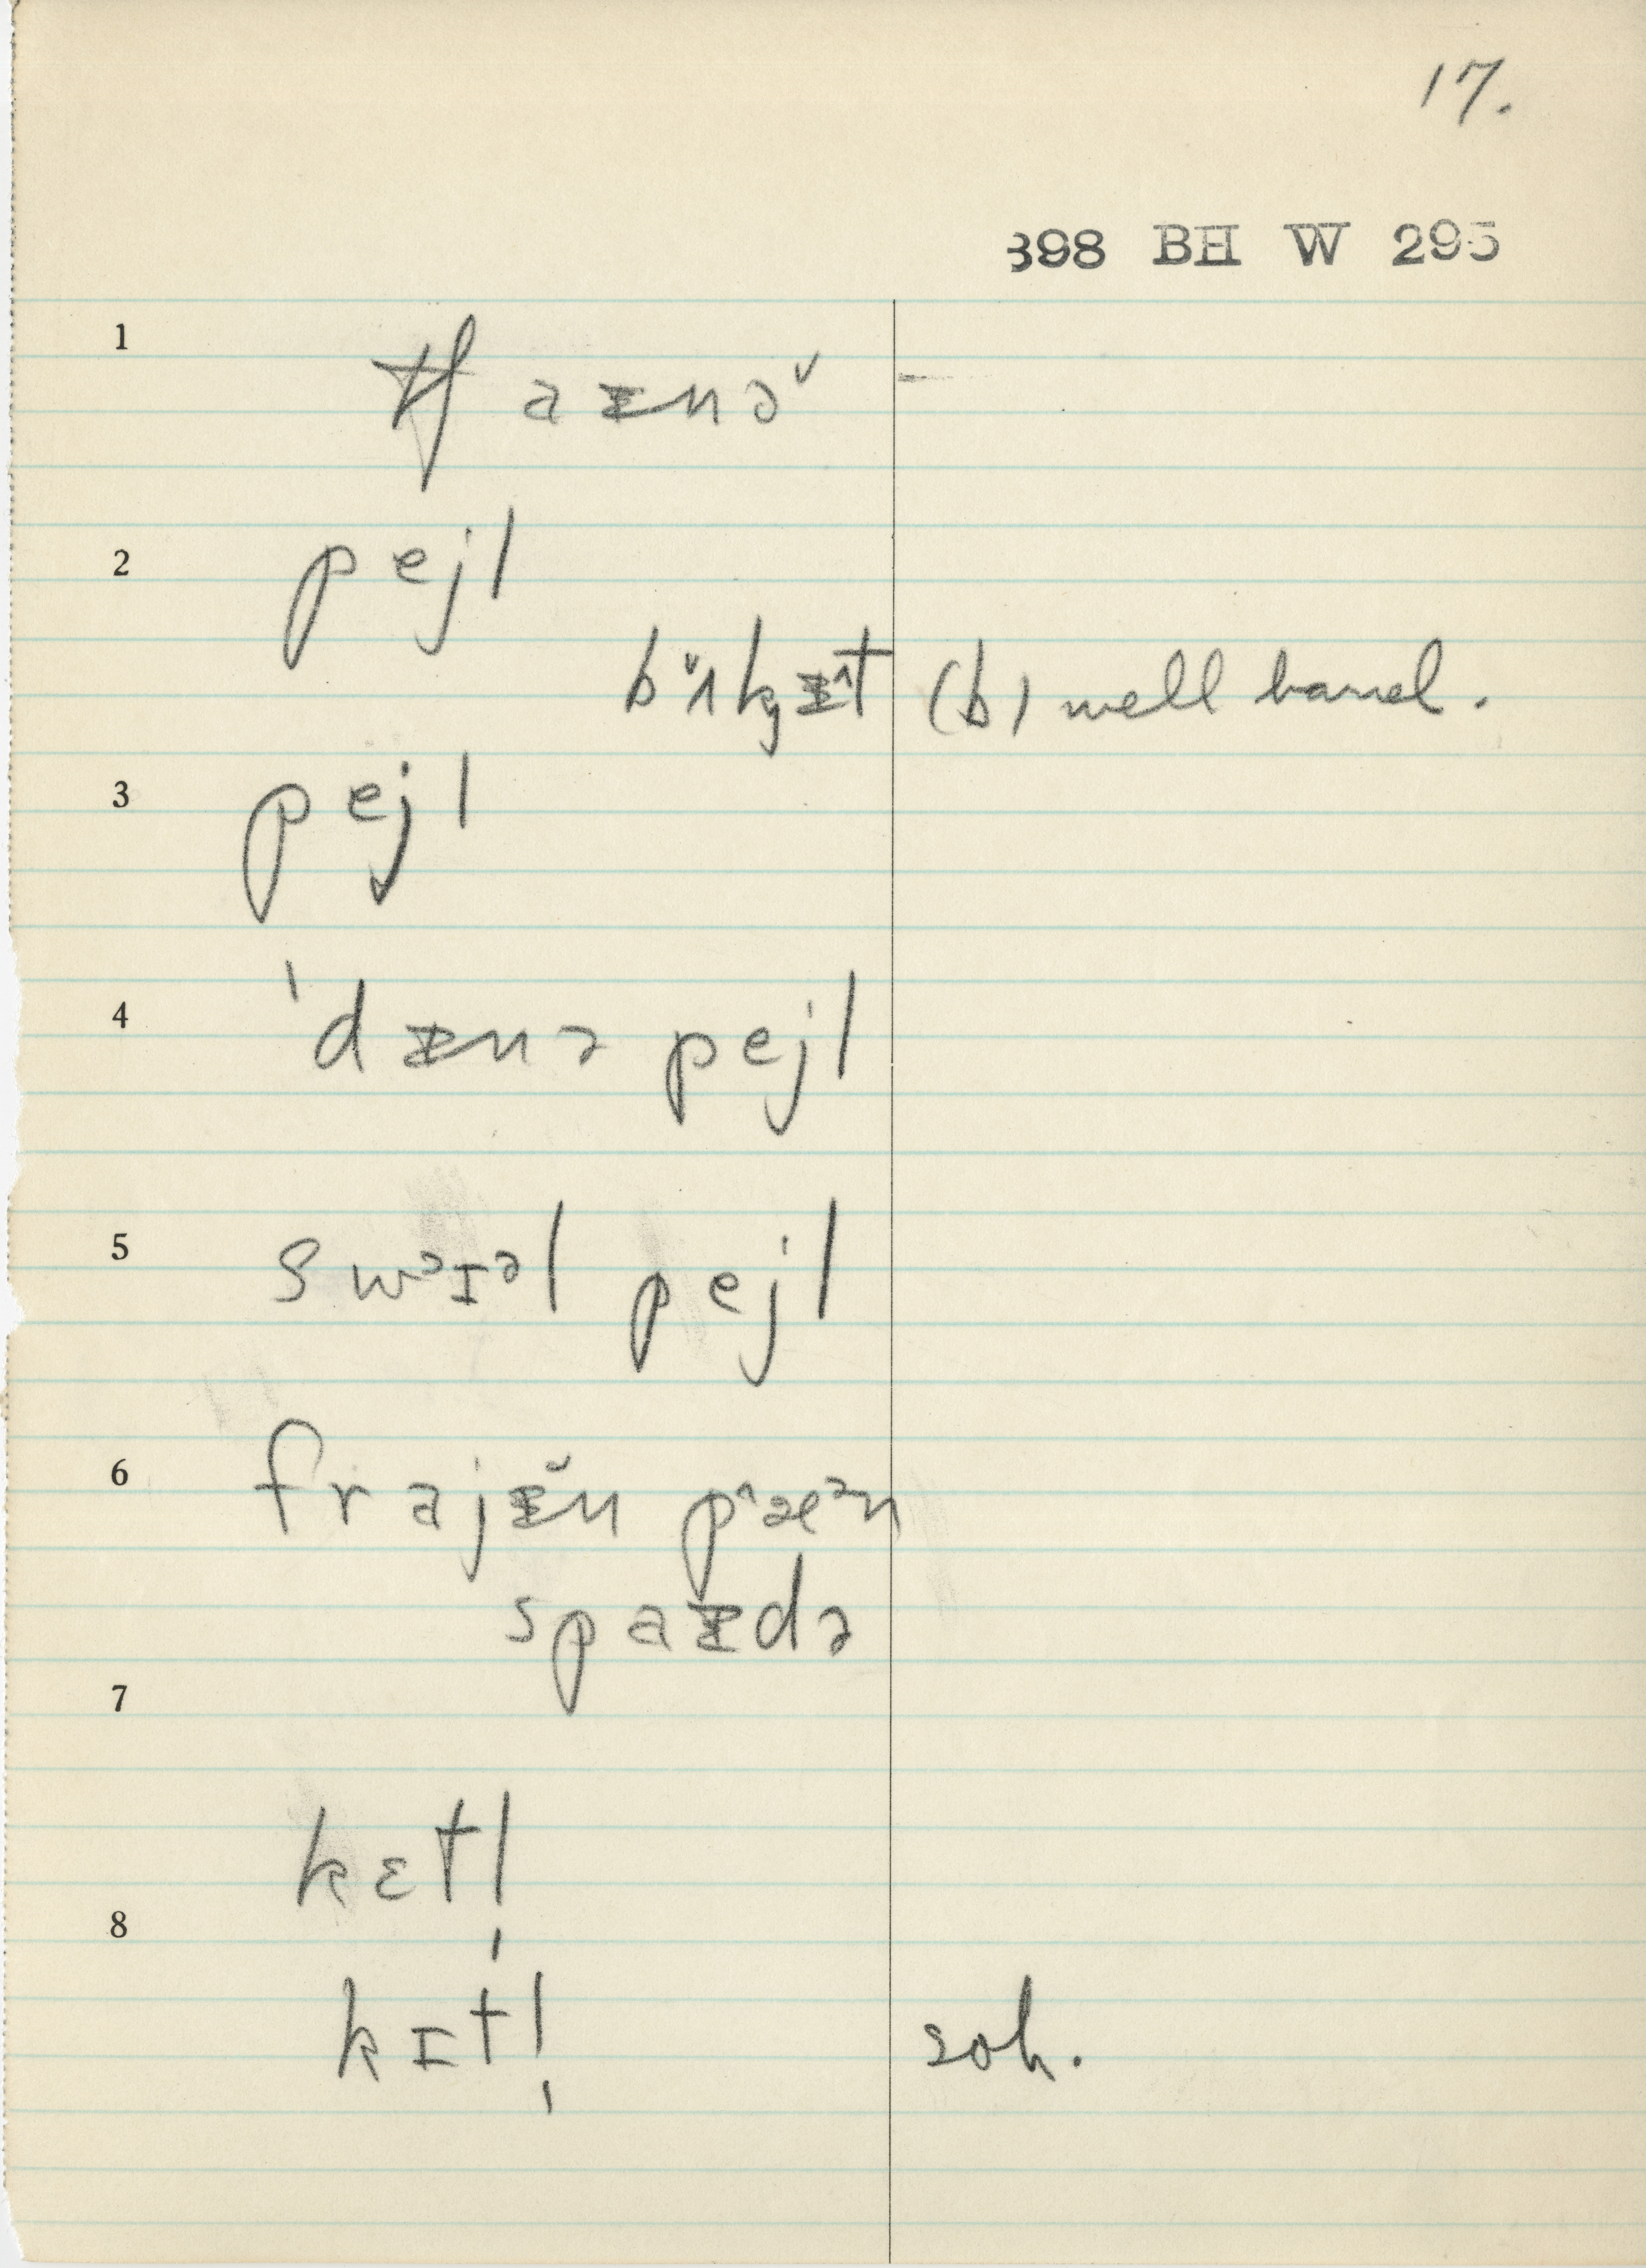 17.
398 BH W 295
1 tʃ aᵻnə̆
2 pejl
bʌ̆kᵻt (b) well barrel.
3 pejl
4 ˈdᵻnə pejl
5 swᵊɪᵊl pejl
6 frajᵻ̆n pˆæᵊn
spaᵻdə
7
kɛtl̩
8
kɪtl̩ soh.